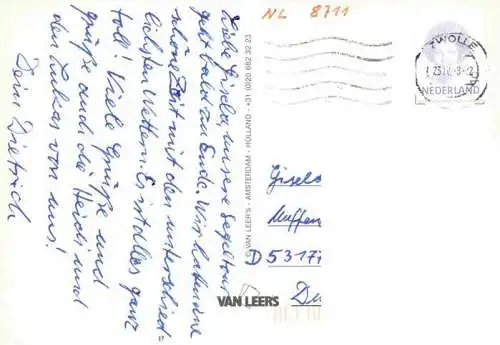 NL 8711
ZWOLLE
NEDERLAND
Liebe Gisela, unsere Segeltour
geht bald zu Ende. Wir hatten eine
schöne Zeit mit den unterschied=
lichsten Wettern. Es ist alles ganz
toll! Viele Grüße und
Grüße auch die Heidi und
den Lukas von uns!
Dein Dietrich
© VAN LEER'S - AMSTERDAM - HOLLAND - (0)20 682 32 23
Gisel
Muffen
D 5317
Du
VAN LEERS